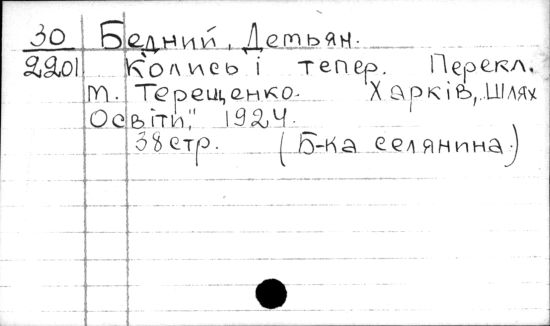 30 Бедний, Детьян.
2201 Колись і тепер. Перекл.
т. Терещенко. Харків, „Шлях
Освіти", 1924.
38 стр. (Б-ка селянина.)